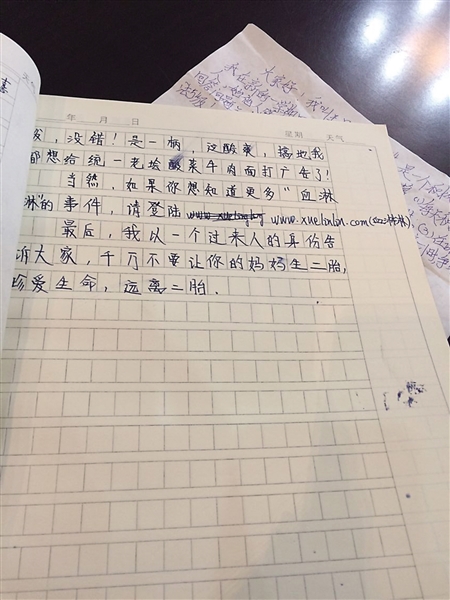 天气
年 月 日 星期 天气
，没错！是一柄，这酸爽，搞地我
都想给统一老坛酸菜牛肉面打广告了！
当然，如果你想知道更多“血淋
淋”的事件，请登陆 www.xuelinlin.com(血淋淋)。
最后，我以一个过来人的身份告
诉大家，千万不要让你的妈妈生二胎，
珍爱生命，远离二胎．
大家好，我叫